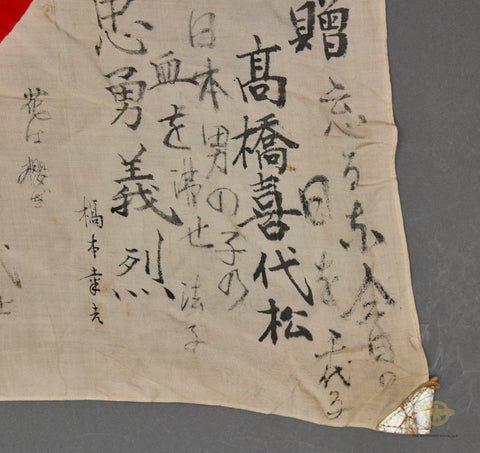 忘るな今日の
日を 千代子
贈
高橋喜代松
日本男の子の
血を沸せ 法子
忠勇義烈
橋本幸
花は櫻ぎ